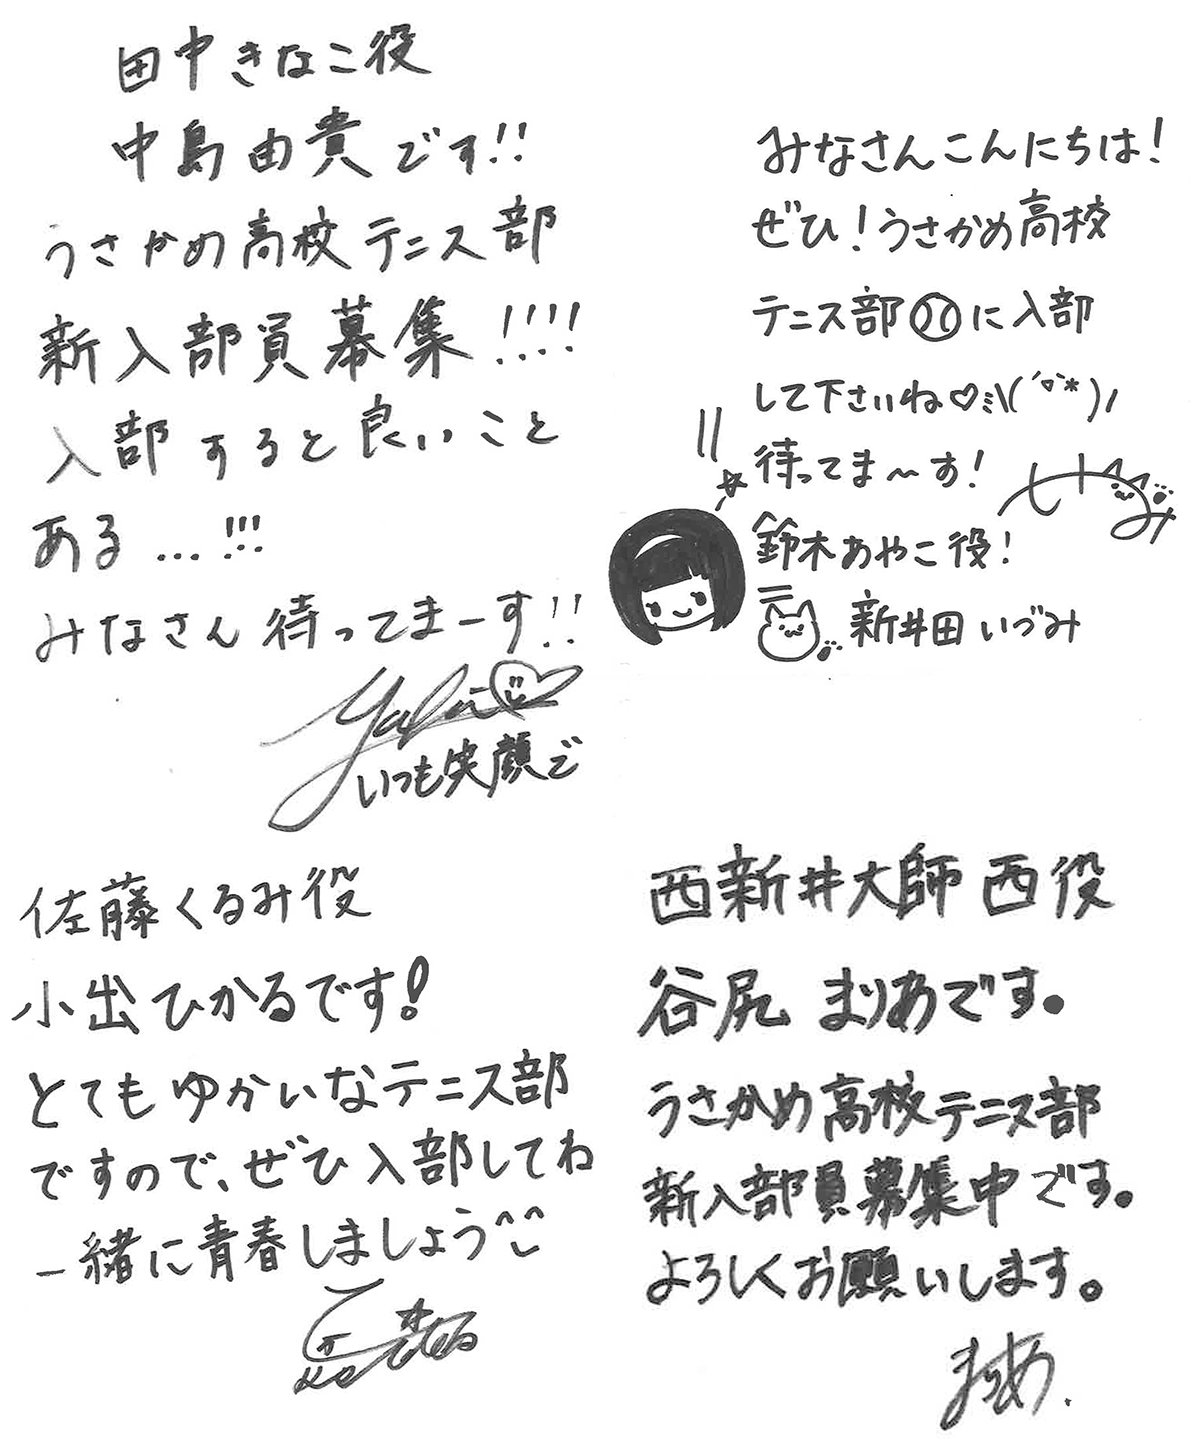 田中きなこ役
中島由貴です!!
うさかめ高校テニス部
新入部員募集!!!!
入部すると良いこと
ある…!!!
みなさん待ってまーす!!
いつも笑顔で
みなさんこんにちは!
ぜひ!うさかめ高校
テニス部に入部
して下さいね♡ミ\(´▽`*)ﾉ
待ってま〜す!
鈴木あやこ役!
新井田いづみ
佐藤くるみ役
小出ひかるです!
とてもゆかいなテニス部
ですので、ぜひ入部してね
一緒に青春しましょう^^
西新井大師西役
谷尻まりあです。
うさかめ高校テニス部
新入部員募集中です。
よろしくお願いします。
まりあ.